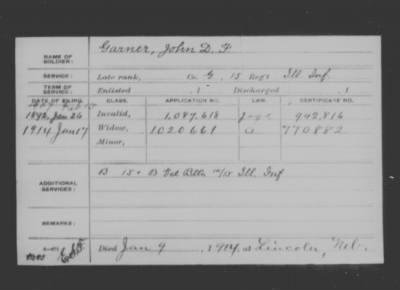 NAME OF SOLDIER: Garner, John D. F
SERVICE: Late rank, Co. G, 15 Reg't Ill. Inf.
TERM OF SERVICE: Enlisted , 1 Discharged , 1
DATE OF FILING. CLASS. APPLICATION NO. LAW. CERTIFICATE NO.
1892, Jan 26 Invalid, 1,087,618 942,816
1914 Jan 17 Widow, 1,020,661 770,882
Minor,
ADDITIONAL SERVICES: B 15 + B Vet Battn 14/15 Ill. Inf
REMARKS:
Died Jan 9, 1914, at Lincoln, Neb.